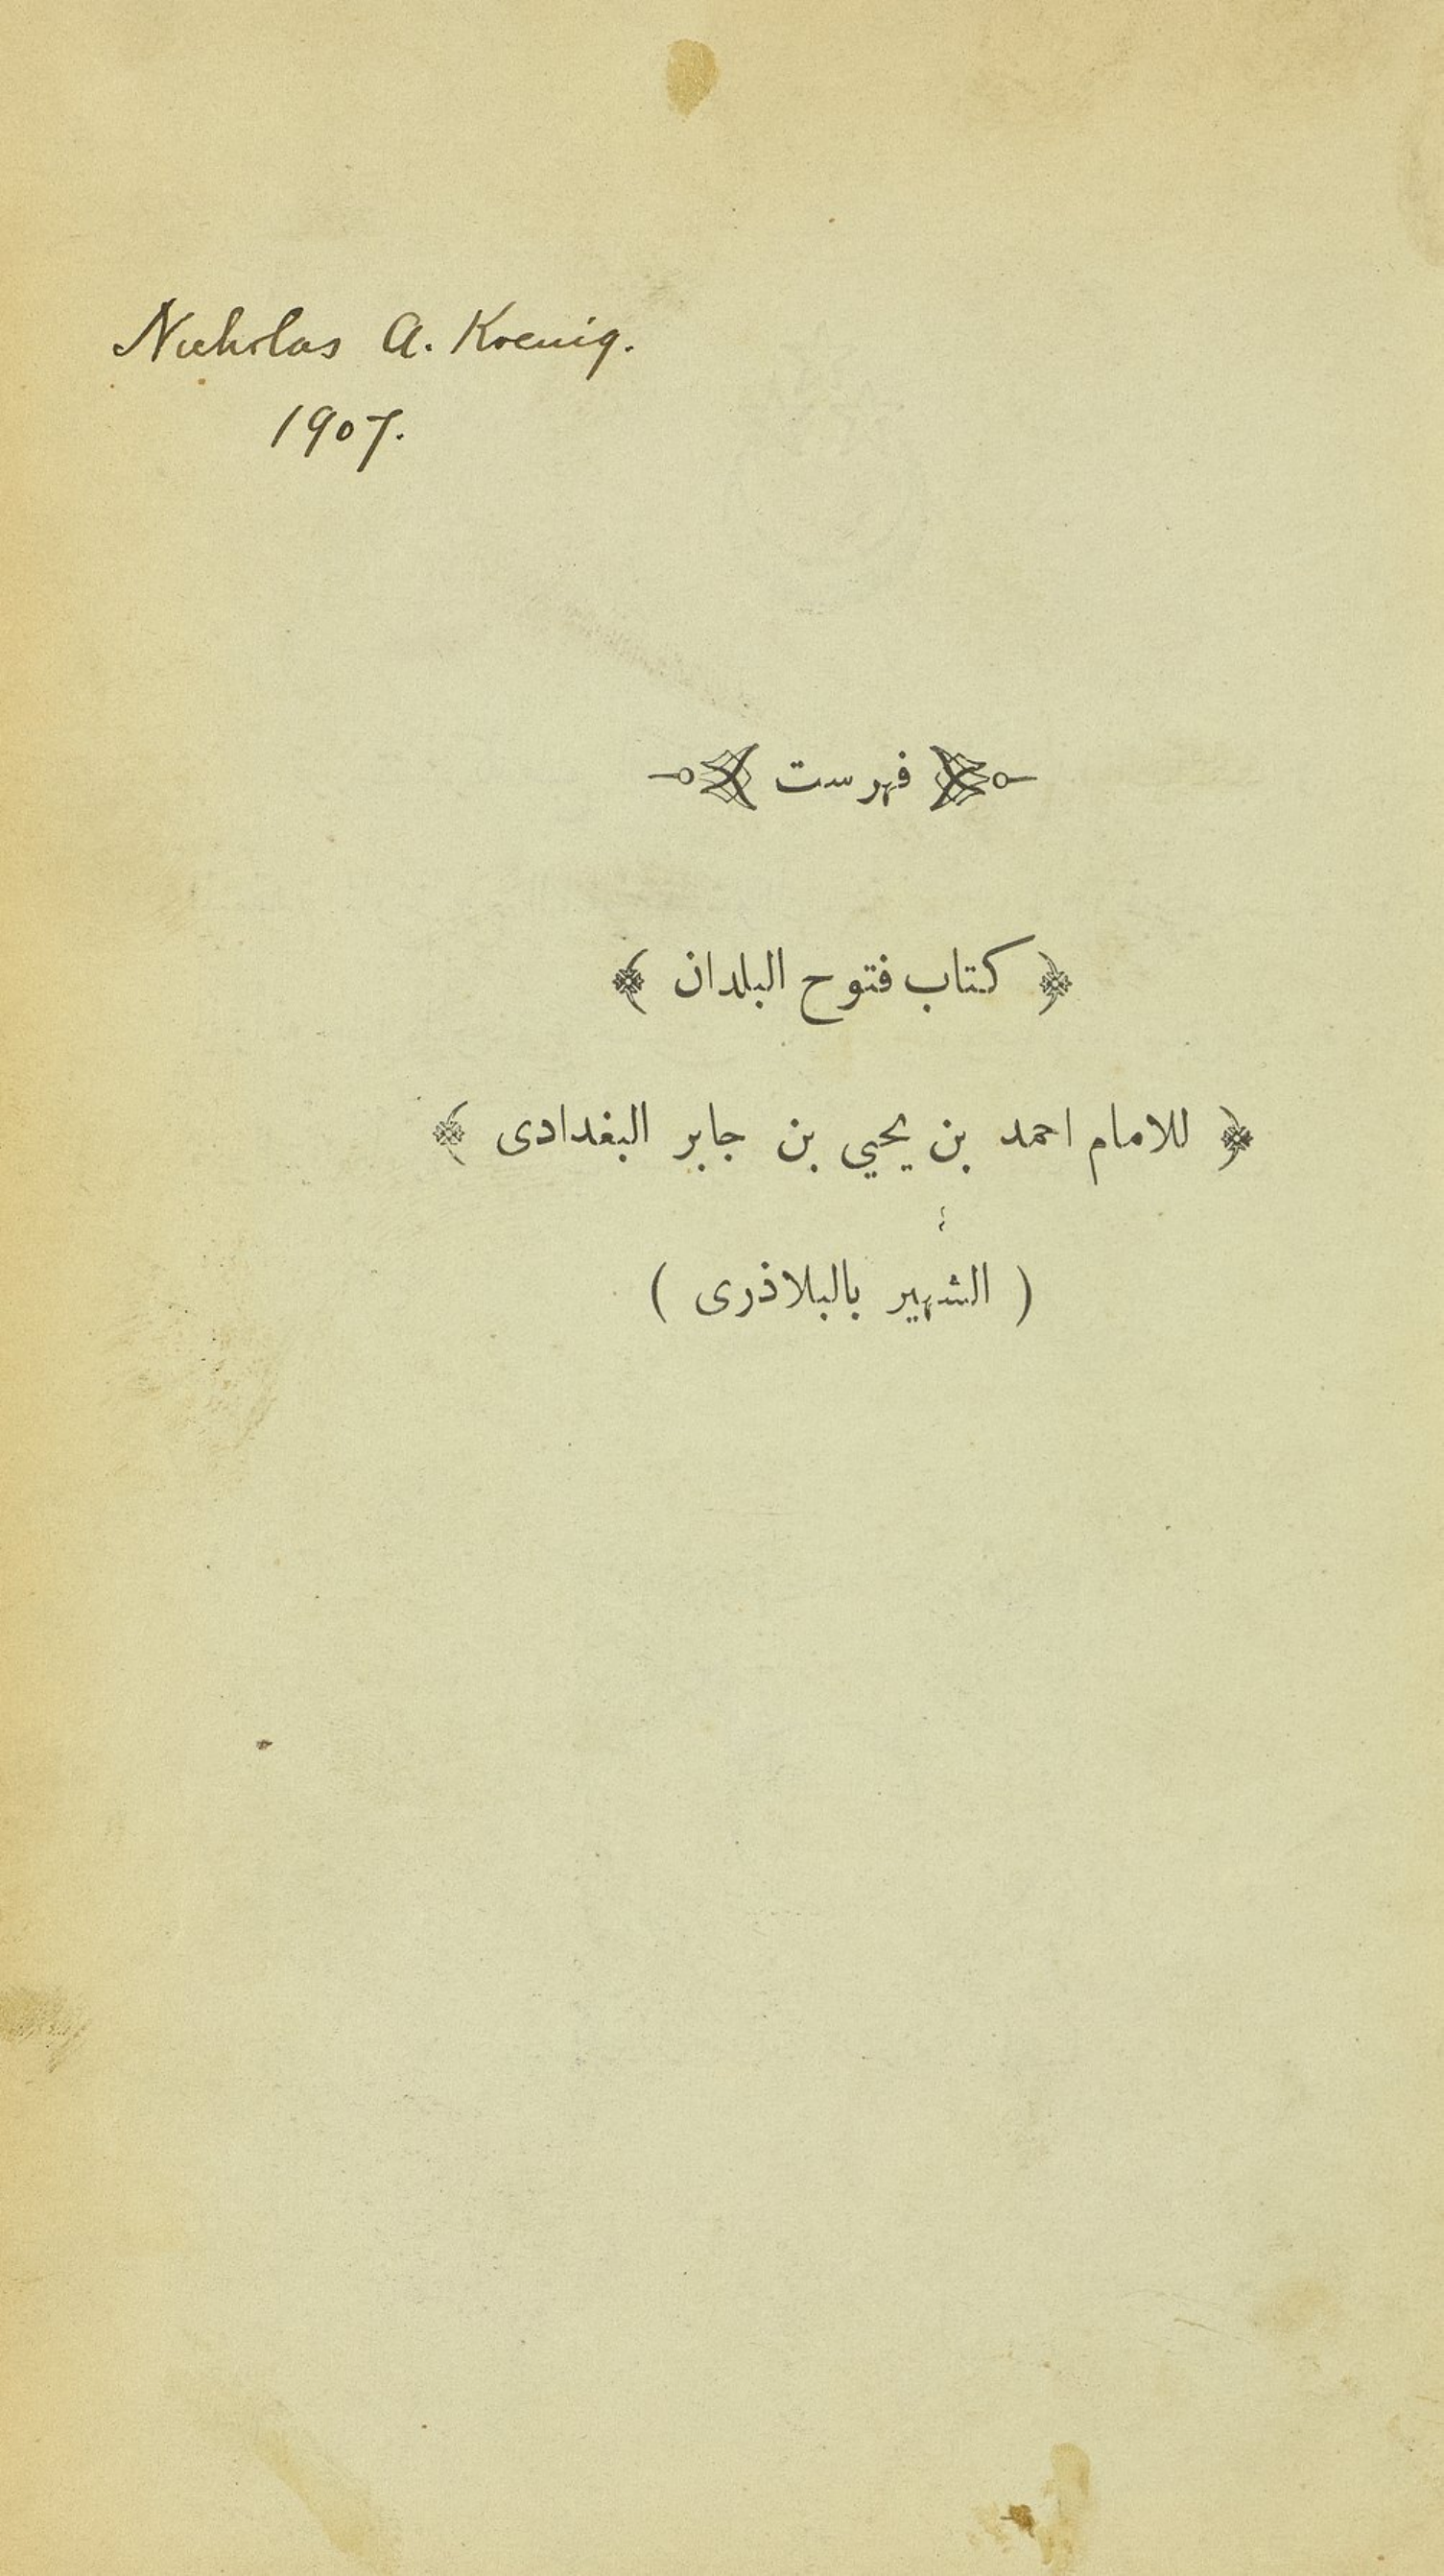 Nicholas A. Koenig.
1907.
فهرست
﴿ كتاب فتوح البلدان ﴾
﴿ للامام احمد بن يحيي بن جابر البغدادى ﴾
( الشهير بالبلاذرى )